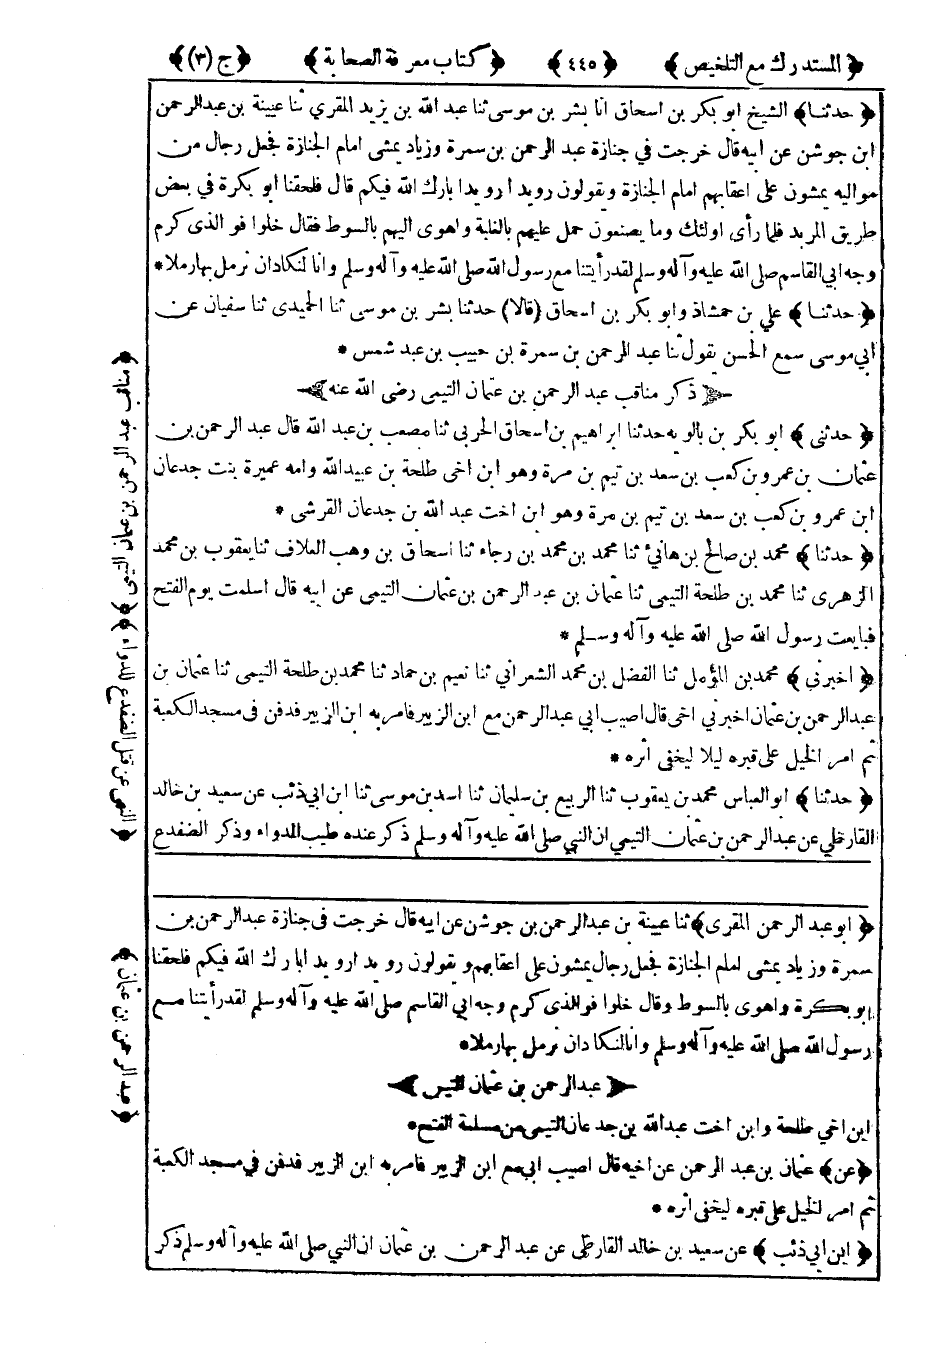 ﴿ المستدرك مع التلخيص ﴾ ﴿ ٤٤٥ ﴾ ﴿ كتاب معرفة الصحابة ﴾ ﴿ ج (٣) ﴾
﴿ حدثنا ﴾ الشيخ ابو بكر بن اسحاق انا بشر بن موسى ثنا عبد الله بن يزيد المقري ثنا عيينة بن عبد الرحمن
ابن جوشن عن ابيه قال خرجت في جنازة عبد الرحمن بن سمرة وزياد يمشى امام الجنازة فجعل رجال من
مواليه يمشون على اعقابهم امام الجنازة ويقولون رويد ا رويدا بارك الله فيكم قال فلحقنا ابو بكرة في بعض
طريق المربد فلما رأى اولئك وما يصنعون حمل عليهم بالبغلة واهوى اليهم بالسوط فقال خلوا فو الذى كرم
وجه ابي القاسم صلى الله عليه وآله وسلم لقد رأيتنا مع رسول الله صلى الله عليه وآله وسلم وانا لنكادان نرمل بها رملا *
﴿ حدثنا ﴾ علي بن حمشاذ وابو بكر بن اسحاق (قالا) حدثنا بشر بن موسى ثنا الحميدى ثنا سفيان عن
ابي موسى سمع الحسن يقول ثنا عبد الرحمن بن سمرة بن حبيب بن عبد شمس *
ذكر مناقب عبد الرحمن بن عثمان التيمى رضى الله عنه
﴿ حدثنى ﴾ ابو بكر بن بالويه حدثنا ابراهيم بن اسحاق الحربي ثنا مصعب بن عبد الله قال عبد الرحمن بن
عثمان بن عمرو بن كعب بن سعد بن تيم بن مرة وهو ابن اخى طلحة بن عبيد الله وامه عميرة بنت جدعان
ابن عمرو بن كعب بن سعد بن تيم بن مرة وهو ابن اخت عبد الله بن جدعان القرشي *
﴿ حدثنا ﴾ محمد بن صالح بن هانئ ثنا محمد بن محمد بن رجاء ثنا اسحاق بن وهب العلاف ثنا يعقوب بن محمد
الزهرى ثنا محمد بن طلحة التيمى ثنا عثمان بن عبد الرحمن بن عثمان التيمى عن ابيه قال اسلمت يوم الفتح
فبايعت رسول الله صلى الله عليه وآله وسلم *
﴿ اخبرني ﴾ محمد بن المؤمل ثنا الفضل بن محمد الشعراني ثنا نعيم بن حماد ثنا محمد بن طلحة التيمى ثنا عثمان بن
عبد الرحمن بن عثمان اخبرني اخى قال اصيب ابي عبد الرحمن مع ابن الزبير فامر به ابن الزبير فدفن فى مسجد الكعبة
ثم امر الخيل على قبره ليلا ليخفى اثره *
﴿ حدثنا ﴾ ابو العباس محمد بن يعقوب ثنا الربيع بن سليمان ثنا اسد بن موسى ثنا ابن ابي ذئب عن سعيد بن خالد
القارظي عن عبد الرحمن بن عثمان التيمي ان النبي صلى الله عليه وآله وسلم ذكر عنده طبيب الدواء وذكر الضفدع
﴿ ابو عبد الرحمن المقرى ﴾ ثنا عيينة بن عبد الرحمن بن جوشن عن ابيه قال خرجت فى جنازة عبد الرحمن بن
سمرة وزياد يمشى امام الجنازة فجعل رجال يمشون على اعقابهم ويقولون رويد ا رويد ا بارك الله فيكم فلحقنا
ابو بكرة واهوى بالسوط وقال خلوا فو الذى كرم وجه ابي القاسم صلى الله عليه وآله وسلم لقد رأيتنا مع
رسول الله صلى الله عليه وآله وسلم وانا لنكادان نرمل بها رملا *
عبد الرحمن بن عثمان التيمى
ابن اخي طلحة وابن اخت عبد الله بن جدعان التيمى من مسلمة الفتح *
﴿ عن ﴾ عثمان بن عبد الرحمن عن اخيه قال اصيب ابي مع ابن الزبير فامر به ابن الزبير فدفن في مسجد الكعبة
ثم امر الخيل على قبره ليخفى اثره *
﴿ ابن ابي ذئب ﴾ عن سعيد بن خالد القارظى عن عبد الرحمن بن عثمان ان النبي صلى الله عليه وآله وسلم ذكر
﴿ مناقب عبد الرحمن بن عثمان التيمى ﴾ ﴿ النهى عن قتل الضفدع للدواء ﴾
﴿ عبد الرحمن بن عثمان ﴾